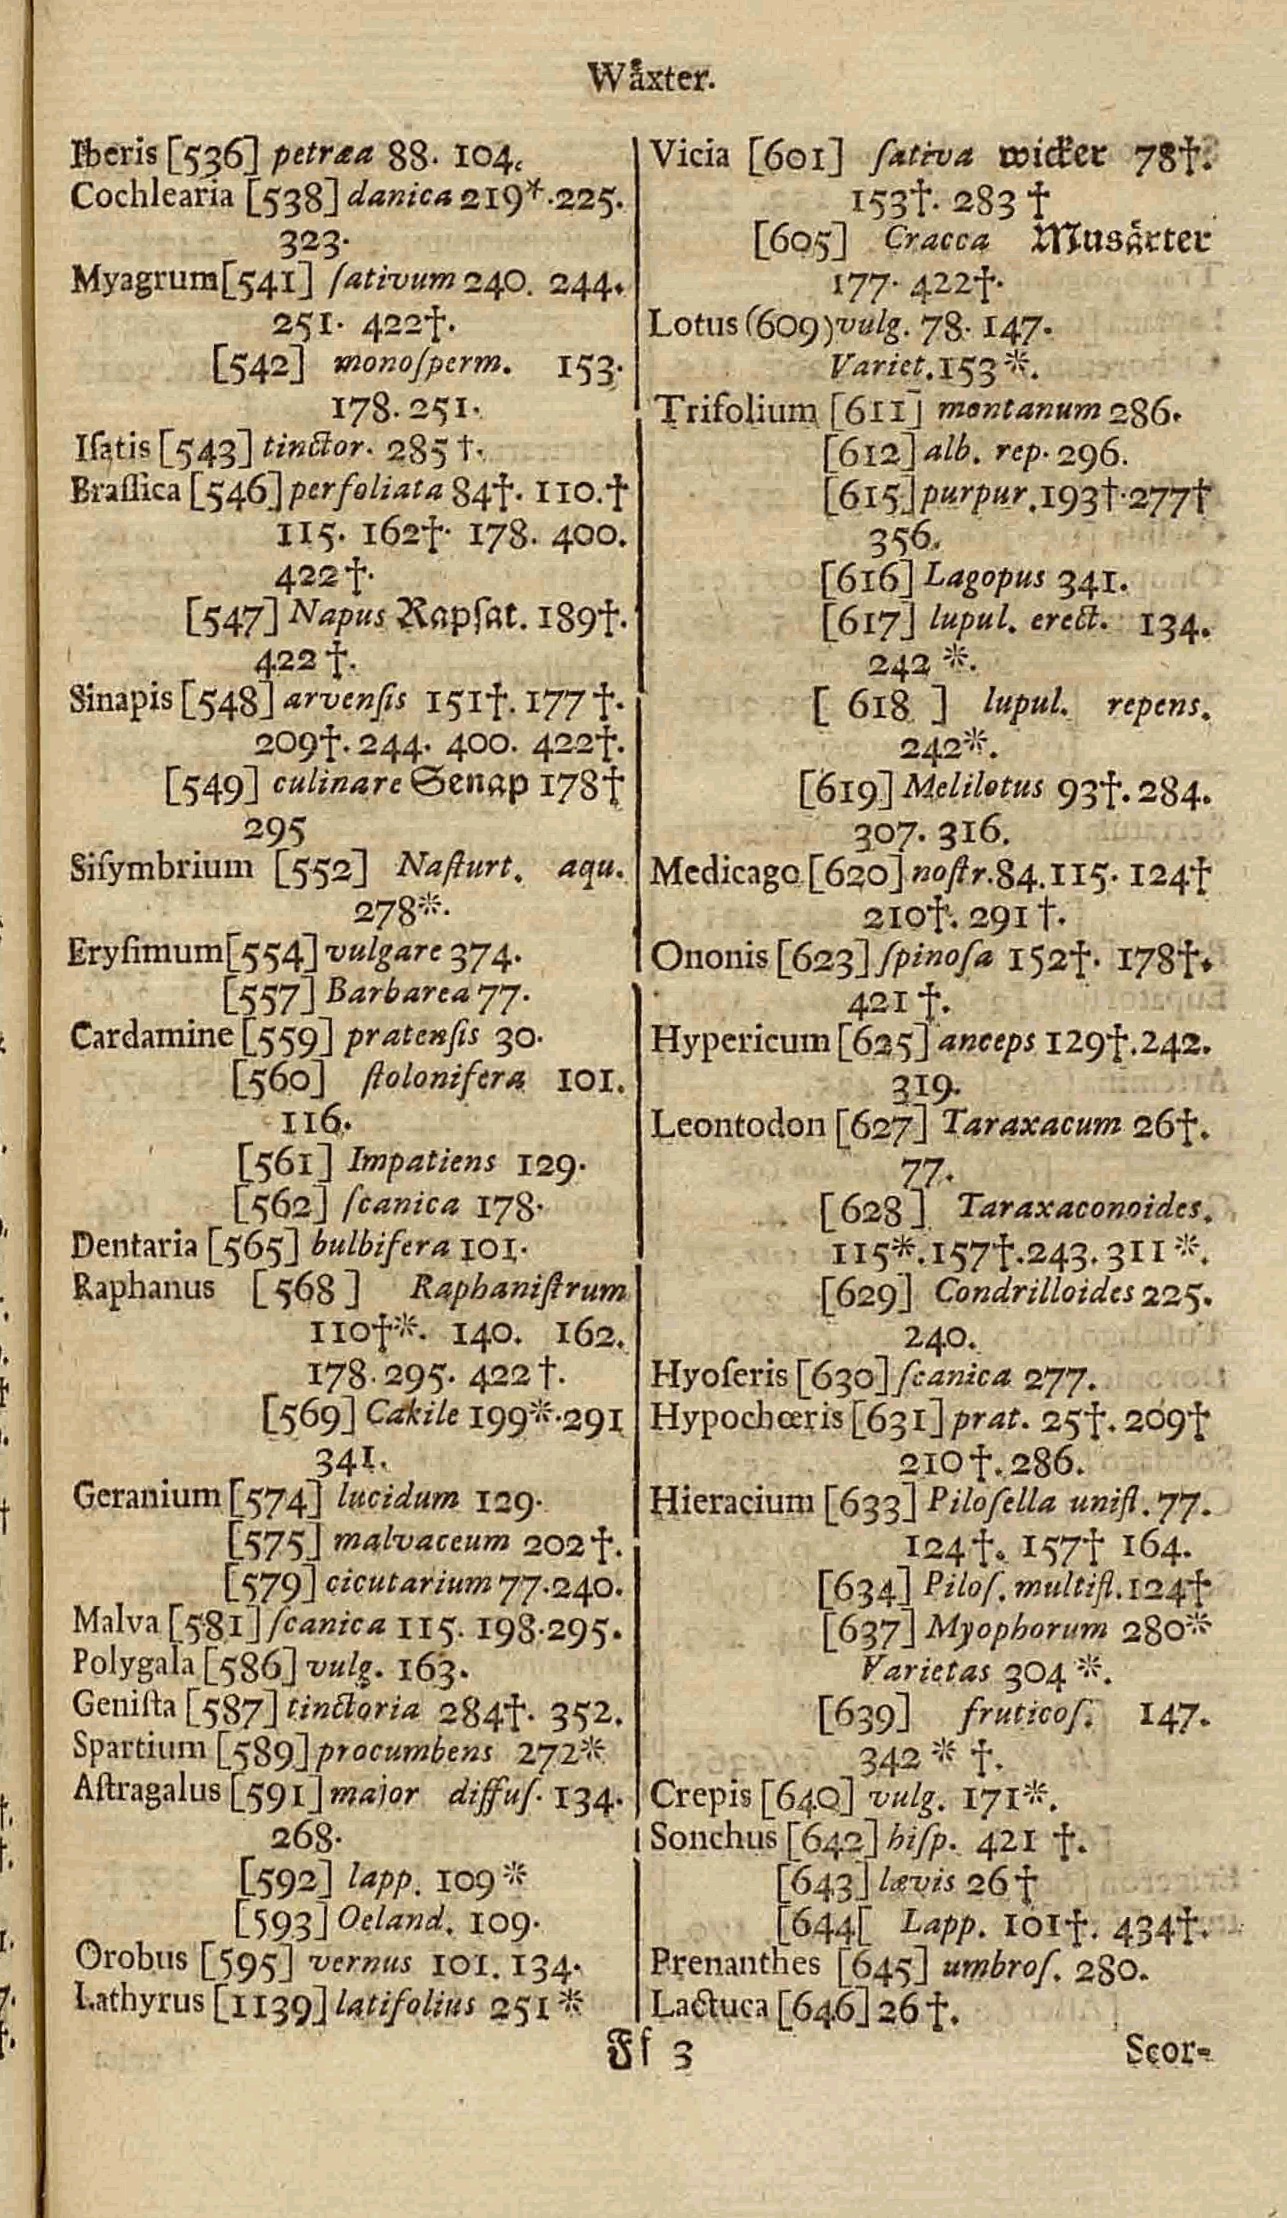 Wåxter.
Iberis [536] petræa 88. 104.
Cochlearia [538] danica 219*.225.
323.
Myagrum[541] ſativum 240. 244.
251. 422†.
[542] monoſperm. 153.
178.251.
Iſatis [543] tinctor. 285†.
Braſſica [546] perfoliata 84†. 110.†
115. 162†. 178. 400.
422†.
[547] Napus Rapſat. 189†.
422†.
Sinapis [548] arvenſis 151†. 177†.
209†. 244. 400. 422†.
[549] culinare Senap 178†
295
Siſymbrium [552] Naſturt. aqu.
278*.
Eryſimum[554] vulgare 374.
[557] Barbarea 77.
Cardamine [559] pratenſis 30.
[560] ſtolonifera 101.
116.
[561] Impatiens 129.
[562] ſcanica 178.
Dentaria [565] bulbifera 101.
Raphanus [568] Raphaniſtrum
110†*. 140. 162.
178. 295. 422†.
[569] Cakile 199*.291
341.
Geranium [574] lucidum 129.
[575] malvaceum 202†.
[579] cicutarium 77.240.
Malva [581] ſcanica 115. 198.295.
Polygala [586] vulg. 163.
Geniſta [587] tinctoria 284†. 352.
Spartium [589] procumbens 272*
Aſtragalus [591] major diffuſ. 134.
268.
[592] lapp. 109*
[593] Oeland. 109.
Orobus [595] vernus 101. 134.
Lathyrus [1139] latifolius 251*
Vicia [601] ſativa wicker 78†.
153†. 283†
[605] Cracca Musårter
177. 422†.
Lotus (609) vulg. 78. 147.
Variet. 153*.
Trifolium [611] montanum 286.
[612] alb. rep. 296.
[615] purpur. 193†.277†
356.
[616] Lagopus 341.
[617] lupul. erect. 134.
242*.
[ 618 ] lupul. repens.
242*.
[619] Melilotus 93†. 284.
307. 316.
Medicago [620] noſtr. 84. 115. 124†
210†. 291†.
Ononis [623] ſpinoſa 152†. 178†.
421†.
Hypericum [625] anceps 129†. 242.
319.
Leontodon [627] Taraxacum 26†.
77.
[628] Taraxaconoides.
115*. 157†. 243. 311*.
[629] Condrilloides 225.
240.
Hyoſeris [630] ſcanica 277.
Hypochœris [631] prat. 25†. 209†
210†. 286.
Hieracium [633] Piloſella unifl. 77.
124†. 157† 164.
[634] Piloſ. multifl. 124†
[637] Myophorum 280*
Varietas 304*.
[639] fruticoſ. 147.
342*†.
Crepis [640] vulg. 171*.
Sonchus [642] hiſp. 421†.
[643] lævis 26†
[644[ Lapp. 101†. 434†.
Prenanthes [645] umbroſ. 280.
Lactuca [646] 26†.
Ff 3
Scor-